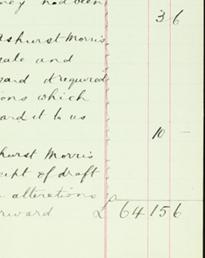 ney had been
3 6
Ashurst Morris,
sale and
ward it required
ions which
ward it to us
10 –
hurst Morris
eipt of draft
alterations
rward £ 64 15 6